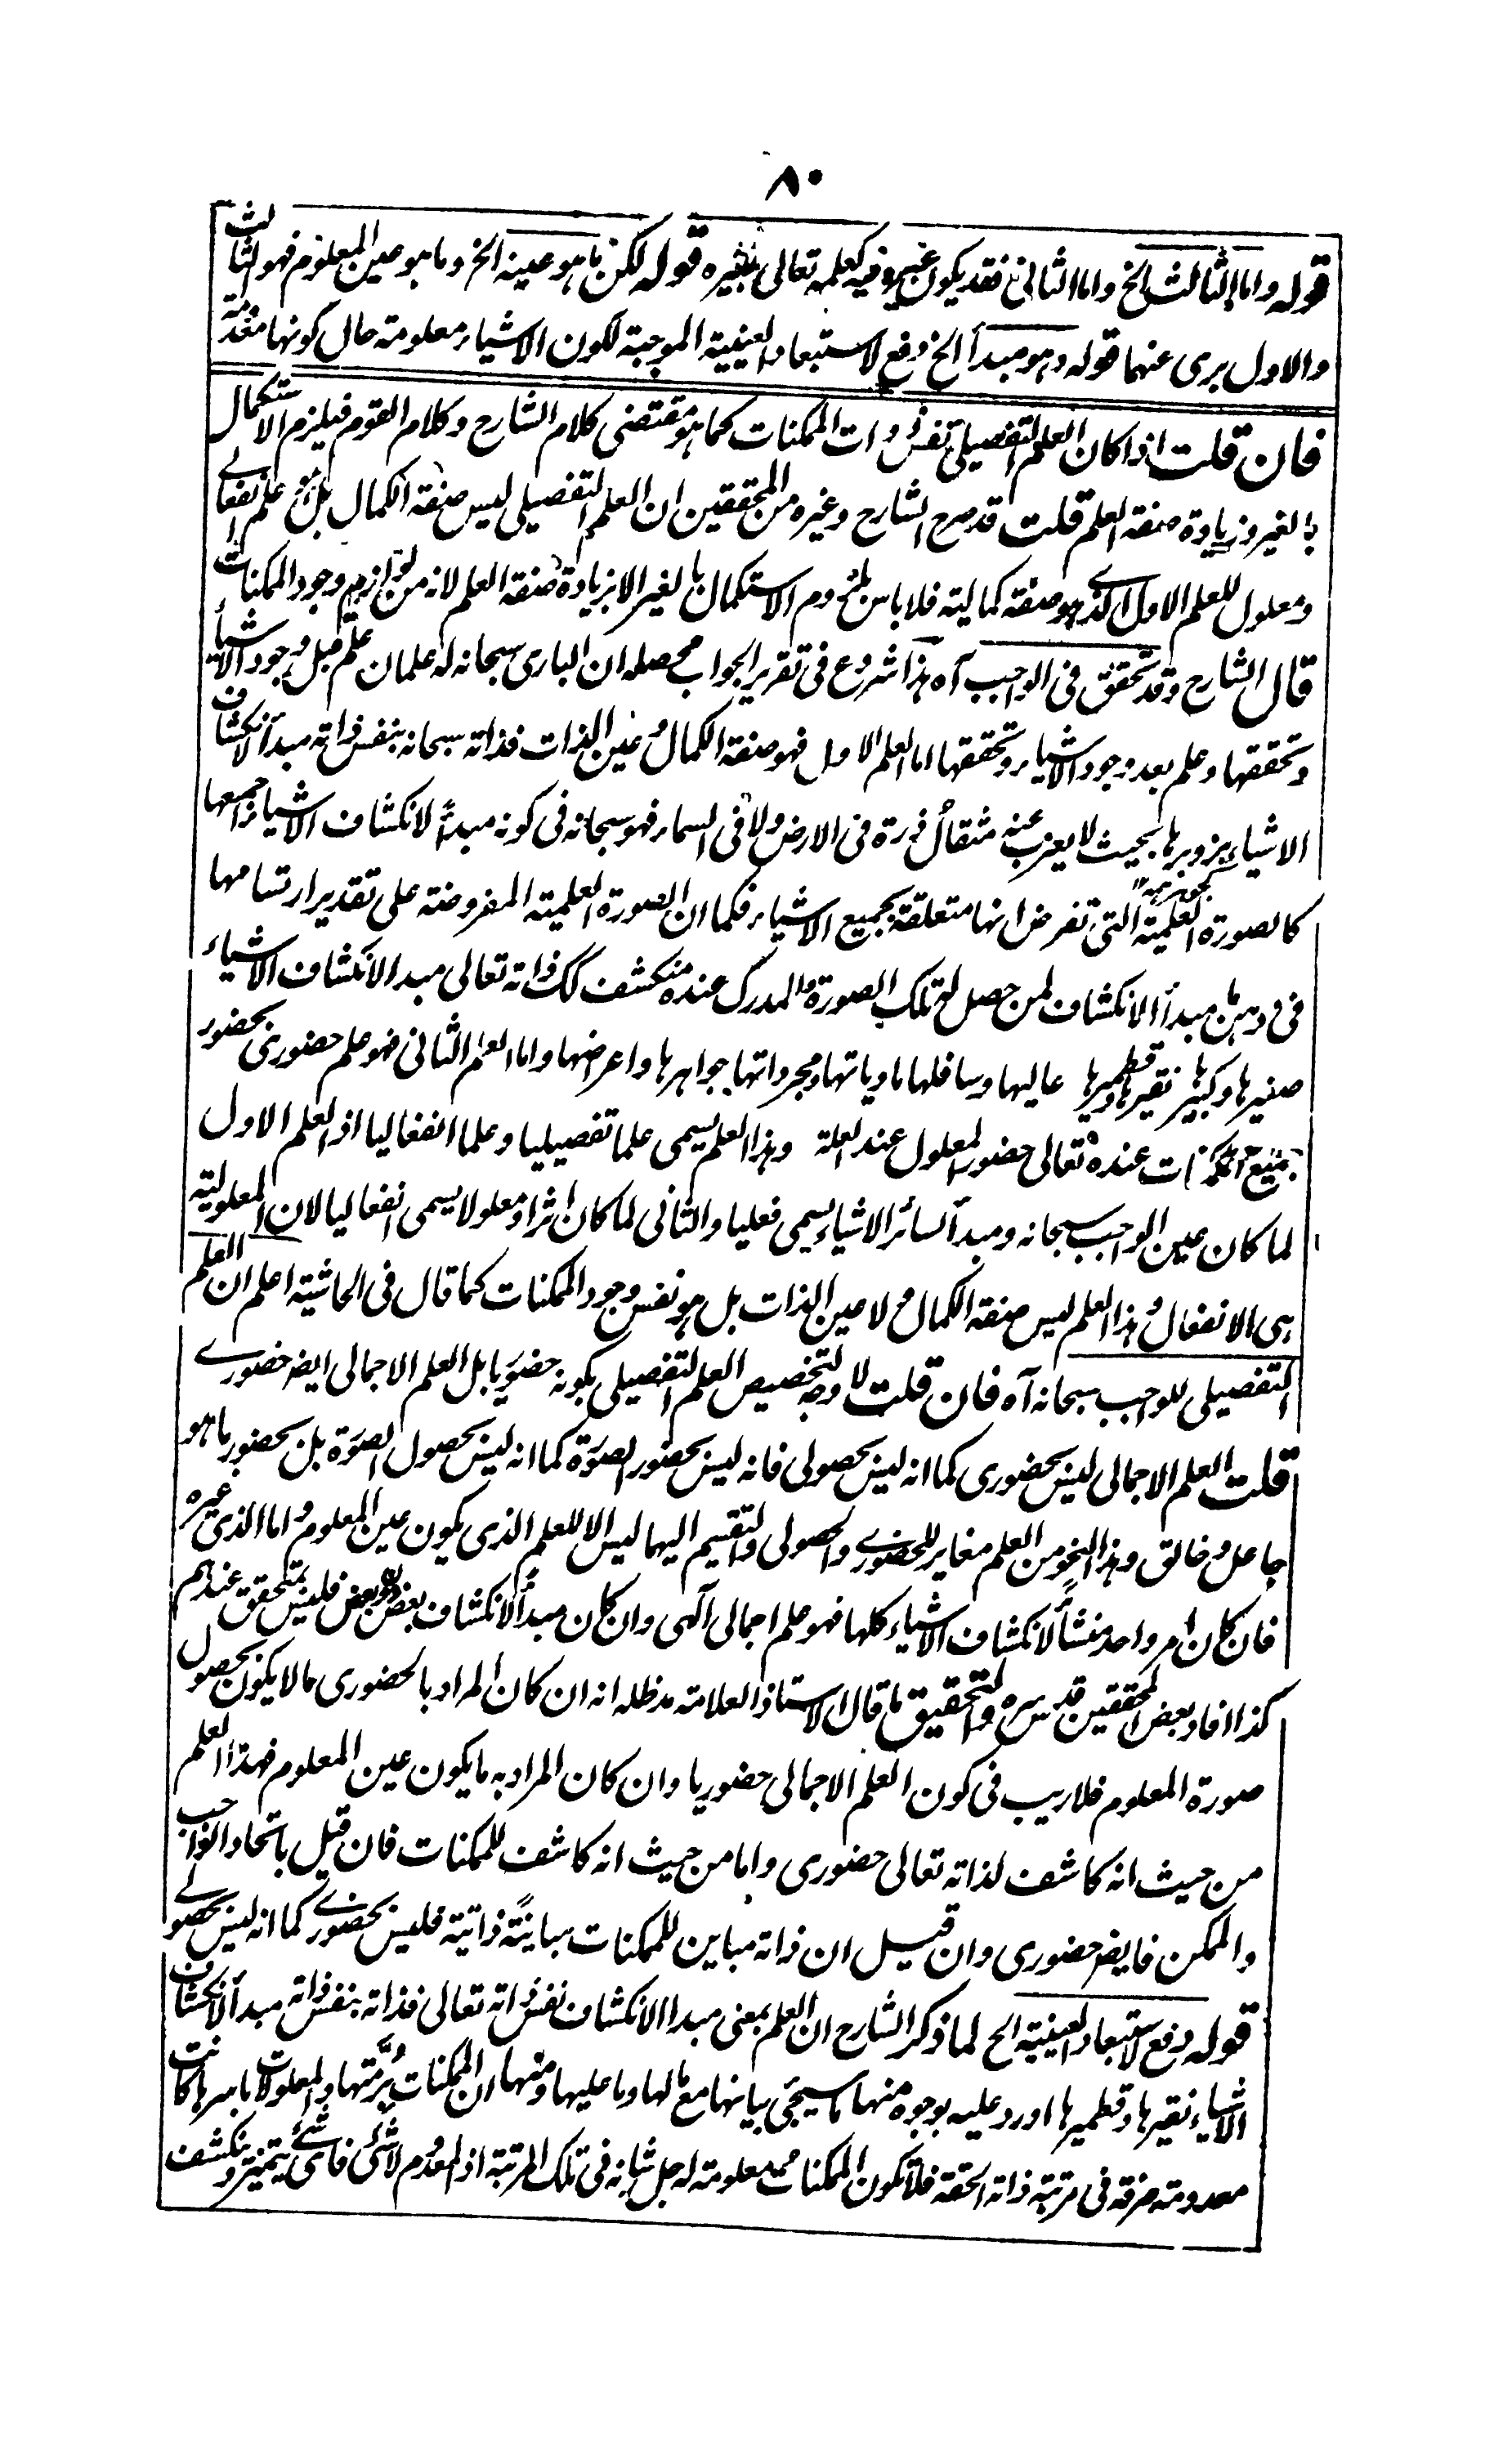 ٨٠
قوله واما الثالث الخ واما الثانى فقد يكون غيره فيه كعلمه تعالى بغيره قوله لكن ما هو عينه الخ وما هو عين المعلوم فهو الثالث
والاول برى عنهما قوله وهو مبدأ الخ دفع لاستبعاد العينية الموجبة لكون الاشياء معلومة حال كونها معدومة
فان قلت اذا كان العلم التفصيلى نفس ذوات الممكنات كما هو مقتضى كلام الشارح وكلام القوم فيلزم الاستكمال
بالغير وزيادة صفة العلم قلت قد صرح الشارح وغيره من المحققين ان العلم التفصيلى ليس صفة الكمال بل هو علم انفعالے
ومعلول للعلم الاول الذے هو صفة كمالية فلا باس بلزوم الاستكمال بالغير الا بزيادة صفة العلم لانه من لوازم وجود الممكنات
قال الشارح وقد تحقق فى الواجب آه هذا شروع فى تقرير الجواب محصله ان البارى سبحانه له علمان علم قبل وجود الاشياء
وتحققها وعلم بعد وجود الاشياء وتحققها اما العلم الاول فهو صفة الكمال وعين الذات فذاته سبحانه بنفس ذاته مبدأ لانكشاف
الاشياء بزوبرها بحيث لا يعزب عنه مثقال ذرة فى الارض ولا فى السماء فهو سبحانه فى كونه مبدأً لانكشاف الاشياء جميعها
كالصورة العلمية التى تفرض انها متعلقة بجميع الاشياء فكما ان الصورة العلمية المفروضة على تقدير ارتسامها
فى ذهن ما مبدأ الانكشاف لمن حصل له تلك الصورة والمدرك عنده منكشف كك ذاته تعالى مبدا لانكشاف الاشياء
صغيرها وكبيرها نقيرها وقطميرها عاليها وسافلها مادياتها ومجرداتها جواهرها واعراضها واما العلم الثانى فهو علم حضورى بحضور
جميع الممكنات عنده تعالى حضور المعلول عند العلة وهذا العلم يسمى علما تفصيليا وعلما انفعاليا اذ العلم الاول
لما كان عين الواجب سبحانه ومبدأ لسائر الاشياء يسمى فعليا والثانى لما كان اثرا ومعلولا يسمى انفعاليا لان المعلولية
هى الانفعال وهذا العلم ليس صفة الكمال ولا عين الذات بل هو نفس وجود الممكنات كما قال فى الحاشية اعلم ان العلم
التفصيلى للواجب سبحانه آه فان قلت لا وجه لتخصيص العلم التفصيلى بكونه حضوريا بل العلم الاجمالى ايضه حضورے
قلت العلم الاجمالى ليس بحضورى كما انه ليس بحصولى فانه ليس بحضور الصورة كما انه ليس بحصول الصورة بل بحضور ما هو
جاعل وخالق وهذا النحو من العلم مغاير للحضورے والحصولى والتقسيم اليهما ليس الا للعلم الذى يكون عين المعلوم واما الذى غيره
فان كان امر واحد منشأً لانكشاف الاشياء كلها فهو علم اجمالى آلهى وان كان مبدأً لانكشاف بعض دون بعض فليس بمتحقق عندهم
كذا افاد بعض المحققين قدس سره والتحقيق ما قال الاستاذ العلامة مدظله انه ان كان المراد بالحضورى ما لا يكون بحصول
صورة المعلوم فلا ريب فى كون العلم الاجمالى حضوريا وان كان المراد به ما يكون عين المعلوم فهذا العلم
من حيث انه كاشف لذاته تعالى حضورى واما من حيث انه كاشف للممكنات فان قيل باتحاد الواجب
والممكن فايضه حضورى وان قيل ان ذاته مباين للممكنات مباينةً ذاتية فليس بحضورے كما انه ليس بحصولے
قوله دفع لاستبعاد العينية الخ لما ذكر الشارح ان العلم بمعنى مبدا الانكشاف نفس ذاته تعالى فذاته بنفس ذاته مبدأ لانكشاف
الاشياء نقيرها وقطميرها اورد عليه بوجوه منها ما سيجئ بيانها مع مالها وما عليها ومنها ان الممكنات برُمَّتها والمعلولات باسرها كانت
معدومة صرفة فى مرتبة ذاته الحقة فلا تكون الممكنات معلومة له جل شانه فى تلك المرتبة اذ المعدوم لا شئ فاى شئ يتميز وينكشف